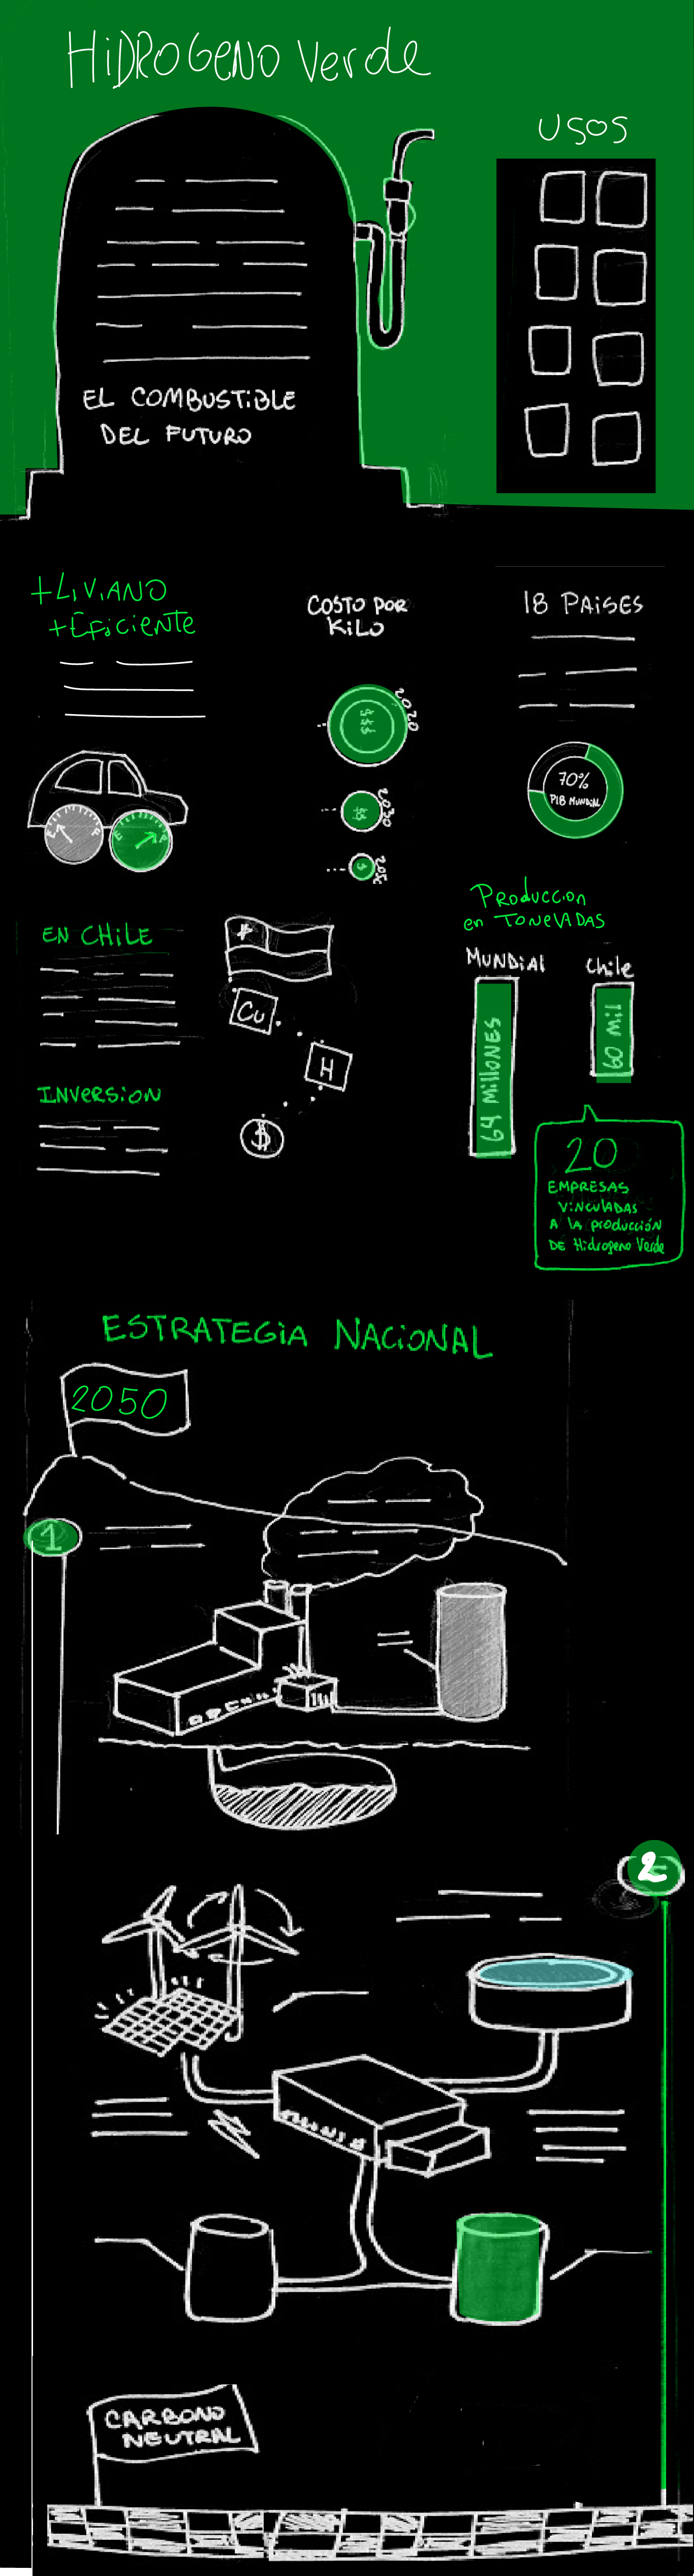 HiDROGeNO Verde
USOS
EL COMBUSTiBLE
DEL FUTURO
+LiViANO
+EFiciente
COSTO POR
KiLO
2020
$$$
2030
$$
2050
$
18 PAiSES
70%
PIB MUNDiAL
E
F
E
F
EN CHiLE
Cu
H
$
INVERSiON
PRoduccion
en TONELADAS
MUNDiAl
Chile
64 MillONES
60 Mil
20
EMPRESAS
ViNCULADAS
A lA producción
DE Hidrogeno Verde
ESTRATEGiA NACiONAL
2050
1
2
CARBONO
NEUTRAL